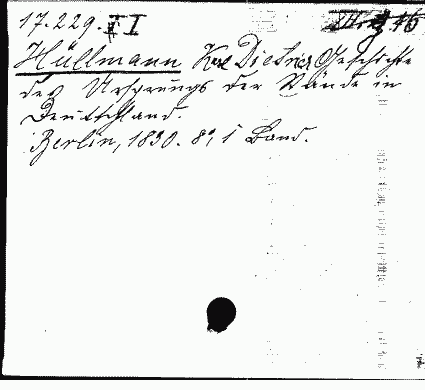 17.229. I
Hüllmann Karl Dietrich Geschichte
des Ursprungs der Stände in
Deutschland.
Berlin, 1830. 8°, 1 Band.